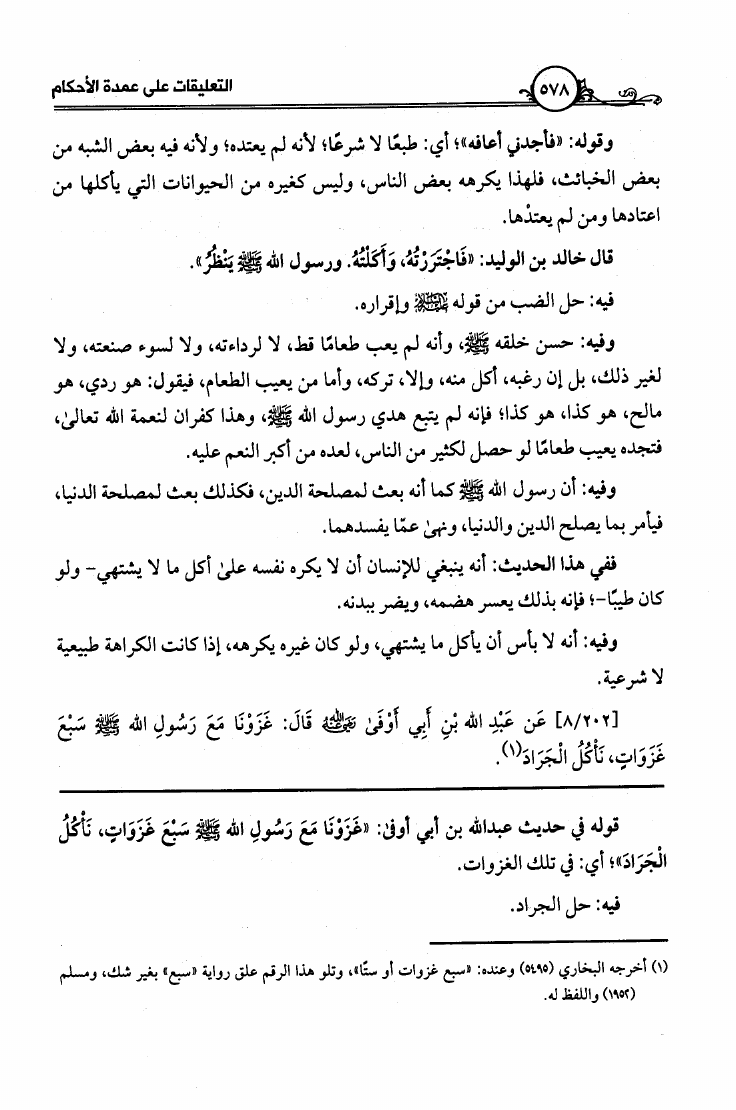 التعليقات على عمدة الأحكام
٥٧٨
وقوله: «فأجدني أعافه»؛ أي: طبعًا لا شرعًا؛ لأنه لم يعتده؛ ولأنه فيه بعض الشبه من
بعض الخبائث، فلهذا يكرهه بعض الناس، وليس كغيره من الحيوانات التي يأكلها من
اعتادها ومن لم يعتدْها.
قال خالد بن الوليد: «فَاجْتَرَرْتُهُ، وَأَكَلْتُهُ. ورسول الله ﷺ يَنْظُرُ».
فيه: حل الضب من قوله ﷺ وإقراره.
وفيه: حسن خلقه ﷺ، وأنه لم يعب طعامًا قط، لا لرداءته، ولا لسوء صنعته، ولا
لغير ذلك، بل إن رغبه، أكل منه، وإلا، تركه، وأما من يعيب الطعام، فيقول: هو ردي، هو
مالح، هو كذا، هو كذا؛ فإنه لم يتبع هدي رسول الله ﷺ، وهذا كفران لنعمة الله تعالىٰ،
فتجده يعيب طعامًا لو حصل لكثير من الناس، لعده من أكبر النعم عليه.
وفيه: أن رسول الله ﷺ كما أنه بعث لمصلحة الدين، فكذلك بعث لمصلحة الدنيا،
فيأمر بما يصلح الدين والدنيا، ونهىٰ عمّا يفسدهما.
ففي هذا الحديث: أنه ينبغي للإنسان أن لا يكره نفسه علىٰ أكل ما لا يشتهي- ولو
كان طيبًا-؛ فإنه بذلك يعسر هضمه، ويضر ببدنه.
وفيه: أنه لا بأس أن يأكل ما يشتهي، ولو كان غيره يكرهه، إذا كانت الكراهة طبيعية
لا شرعية.
[٨/٢٠٢] عَن عَبْدِ الله بْنِ أَبِي أَوْفَىٰ رَضِيَ اللهُ عَنْهُ قَالَ: غَزَوْنَا مَعَ رَسُولِ الله ﷺ سَبْعَ
غَزَوَاتٍ، نَأْكُلُ الْجَرَادَ(١).
قوله في حديث عبدالله بن أبي أوفىٰ: «غَزَوْنَا مَعَ رَسُولِ الله ﷺ سَبْعَ غَزَوَاتٍ، نَأْكُلُ
الْجَرَادَ»؛ أي: في تلك الغزوات.
فيه: حل الجراد.
(١) أخرجه البخاري (٥٤٩٥) وعنده: «سبع غزوات أو ستًّا»، وتلو هذا الرقم علق رواية «سبع» بغير شك، ومسلم
(١٩٥٢) واللفظ له.